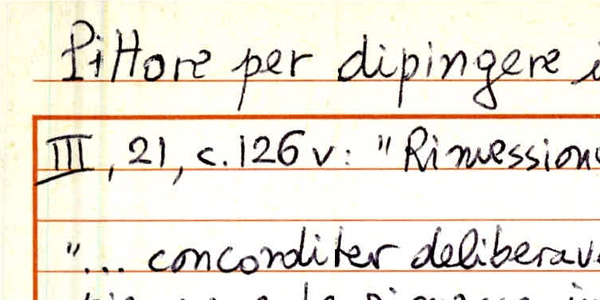 Pittore per dipingere
III, 21, c. 126 v: "Rimession
"... concorditer deliberav